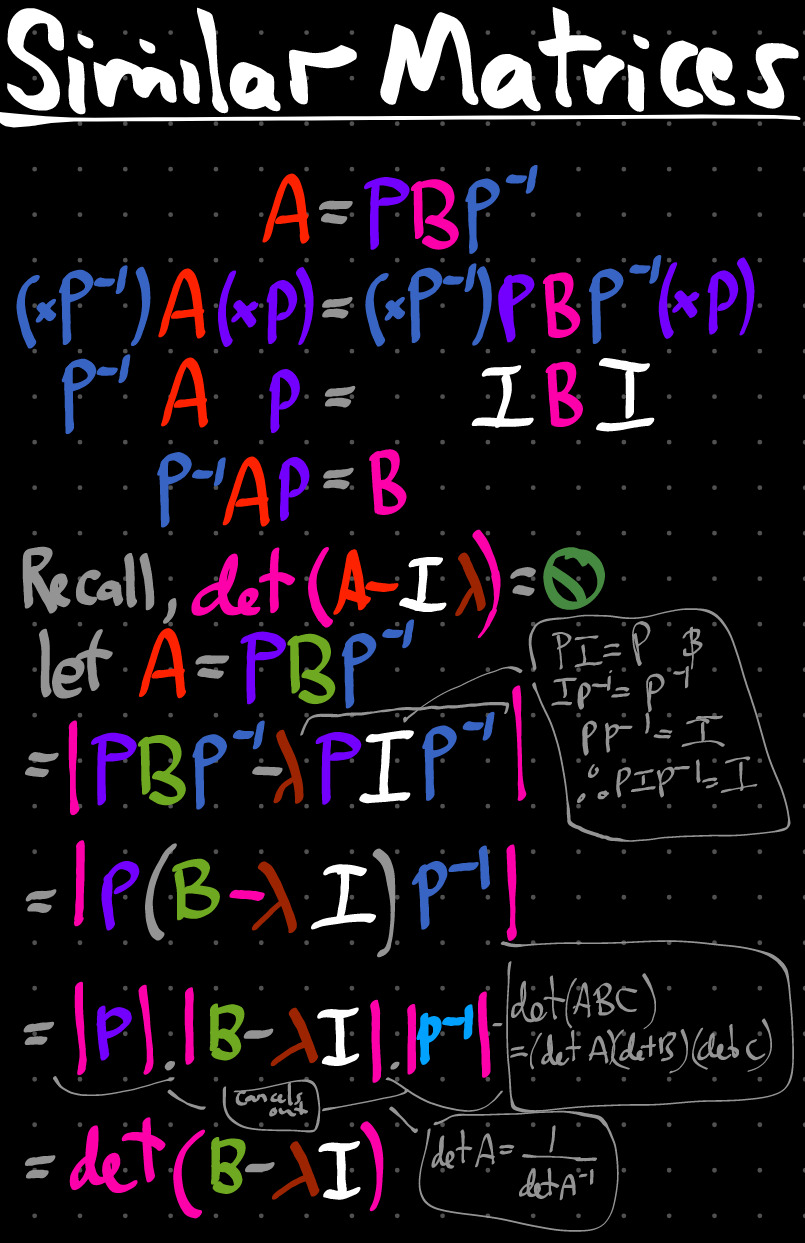 Similar Matrices
A = PBP⁻¹
(×P⁻¹) A (×P) = (×P⁻¹) P B P⁻¹ (×P)
P⁻¹ A P = I B I
P⁻¹AP = B
Recall, det(A - I λ) = 0
let A = PBP⁻¹
= |PBP⁻¹ - λ P I P⁻¹|
PI = P
IP⁻¹ = P⁻¹
PP⁻¹ = I
∴ PIP⁻¹ = I
= |P(B - λ I) P⁻¹|
= |P| . |B - λI| . |P⁻¹|
det(ABC)
= (det A)(det B)(det C)
cancels
out
= det(B - λI)
det A = 1/det A⁻¹